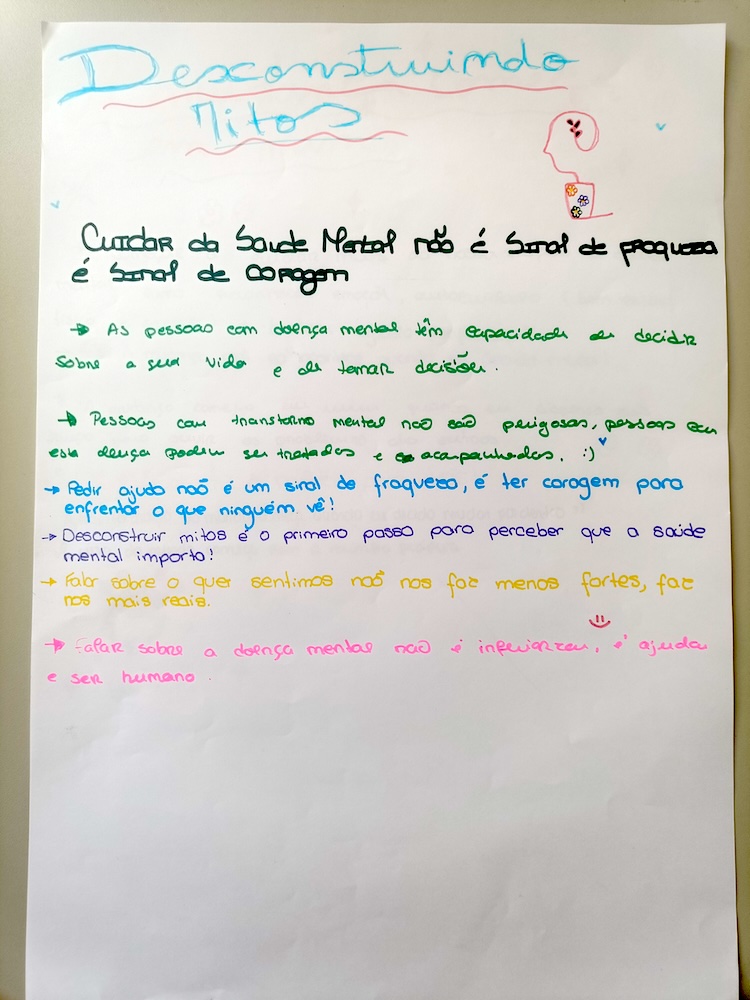 Desconstruindo
Mitos
Cuidar da Saude Mental não é Sinal de fraqueza
é Sinal de coragem
→ As pessoas com doença mental têm capacidade de decidir
sobre a sua vida e de tomar decisões.
→ Pessoas com transtorno mental nao são perigosas, pessoas com
esta doença podem ser tratadas e acompanhadas. :)
→ Pedir ajuda naõ é um sinal de fraqueza, é ter coragem para
enfrentar o que ninguém vê!
→ Desconstruir mitos é o primeiro passo para perceber que a saúde
mental importa!
→ Falar sobre o quer sentimos naõ nos faz menos fortes, faz
nos mais reais.
→ Falar sobre a doença mental não é inferiorizar, é ajudar
e ser humano.